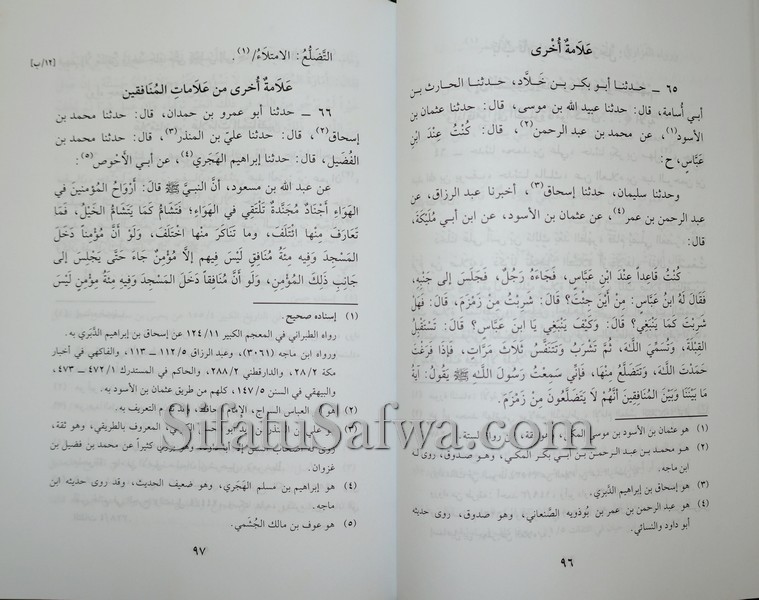 عَلَامةٌ أُخْرى
٦٥ ــ حدثنا أبو بكر بن خَلَّاد، حدثنا الحارث بن
أبي أسامة، قال: حدثنا عبيد الله بن موسى، قال: حدثنا عثمان بن
الأسود(١)، عن محمد بن عبد الرحمن(٢)، قال: كُنْتُ عِنْدَ ابْنِ
عَبَّاسٍ، ح:
وحدثنا سليمان، حدثنا إسحاق(٣)، أخبرنا عبد الرزاق، عن
عبد الرحمن بن عمر(٤)، عن عثمان بن الأسود، عن ابن أبي مُلَيْكَة،
قال:
كُنْتُ قَاعِداً عِنْدَ ابْنِ عَبَّاسٍ، فَجَاءَهُ رَجُلٌ، فَجَلَسَ إلى جَنْبِهِ،
فَقَالَ لَهُ ابْنُ عَبَّاسٍ: مِنْ أَيْنَ جِئْتَ؟ قالَ: شَرِبْتُ مِنْ زَمْزَمَ، قَالَ: فَهَلْ
شَرِبْتَ كَمَا يَنْبَغِي؟ قالَ: وَكَيْفَ يَنْبَغِي يَا ابنَ عَبَّاس؟ قالَ: تَسْتَقْبِلُ
القِبْلَةَ، وتُسَمِّي اللَّهَ، ثُمَّ تَشْرَبُ وتَتَنَفَّسُ ثَلَاثَ مَرَّاتٍ، فَإِذَا فَرَغْتَ
حَمَدْتَ اللَّهَ، وَتَتَضَلَّعُ مِنْهَا، فَإِنِّي سَمِعْتُ رَسُولَ اللَّهِ ﷺ يَقُولُ: آيَةُ
مَا بَيْنَنَا وَبَيْنَ المُنَافِقِينَ أَنَّهُمْ لاَ يَتَضَلَّعُونَ مِنْ زَمْزَمَ.
(١) هو عثمان بن الأسود بن موسى المكي،
(٢) هو محمد بن عبد الرحمن بن أبي بكر المكي، وهو صدوق، روى له
ابن ماجه.
(٣) هو إسحاق بن إبراهيم الدَّبَري.
(٤) هو عبد الرحمن بن عمر بن بُوذويه الصَّنعاني، وهو صدوق، روى حديثه
أبو داود والنسائي.
٩٦
التَّضَلُّعُ: الامتلاءُ/(١). [١٢/ب]
عَلَامَةٌ أُخرى من عَلَاماتِ المُنَافقين
٦٦ ــ حدثنا أبو عمرو بن حمدان، قال: حدثنا محمد بن
إسحاق(٢)، قال: حدثنا عليّ بن المنذر(٣)، قال: حدثنا محمد بن
الفُضَيل، قال: حدثنا إبراهيم الهَجَري(٤)، عن أبي الأحْوص(٥):
عن عبد الله بن مسعود، أنَّ النبيَّ ﷺ قالَ: أَرْوَاحُ المُؤمنينَ في
الهَوَاءِ أَجْنَادٌ مُجَنَّدَةٌ تَلْتَقِي في الهَوَاءِ؛ فَتَشَامُّ كَمَا يَتَشَامُّ الخَيْلُ، فَمَا
تَعَارَفَ مِنْها ائْتَلَفَ، وما تَنَاكَرَ مِنْها اخْتَلَفَ، وَلَوْ أَنَّ مُؤْمِناً دَخَلَ
المَسْجِدَ وَفيه مِئَةُ مُنَافِقٍ لَيْسَ فيهم إلاَّ مُؤْمِنٌ جَاءَ حَتَّى يَجْلِسَ إلى
جَانِبِ ذَلِكَ المُؤْمِنِ، وَلَو أنَّ مُنَافقاً دَخَلَ المَسْجِدَ وَفِيهِ مِئَةُ مؤْمِنٍ لَيْسَ
(١) إسناده صحيح.
رواه الطبراني في المعجم الكبير ١٢٤/١١ عن إسحاق بن إبراهيم الدَّبَري به.
ورواه ابن ماجه (٣٠٦١)، وعبد الرزاق ١١٢/٥ ــ ١١٣، والفاكهي في أخبار
مكة ٢٨/٢، والدارقطني ٢٨٨/٢، والحاكم في المستدرك ٤٧٢/١ ــ ٤٧٣،
والبيهقي في السنن ١٤٧/٥، كلهم من طريق عثمان بن الأسود به.
(٢) هو العباس السراج، الإمام التعريف به.
(٣) المعروف بالطريقي، وهو ثقة،
كثيراً عن محمد بن فضيل بن
غزوان.
(٤) هو إبراهيم بن مسلم الهَجَري، وهو ضعيف الحديث، وقد روى حديثه ابن
ماجه.
(٥) هو عوف بن مالك الجُشَمي.
٩٧
SifatuSafwa.com